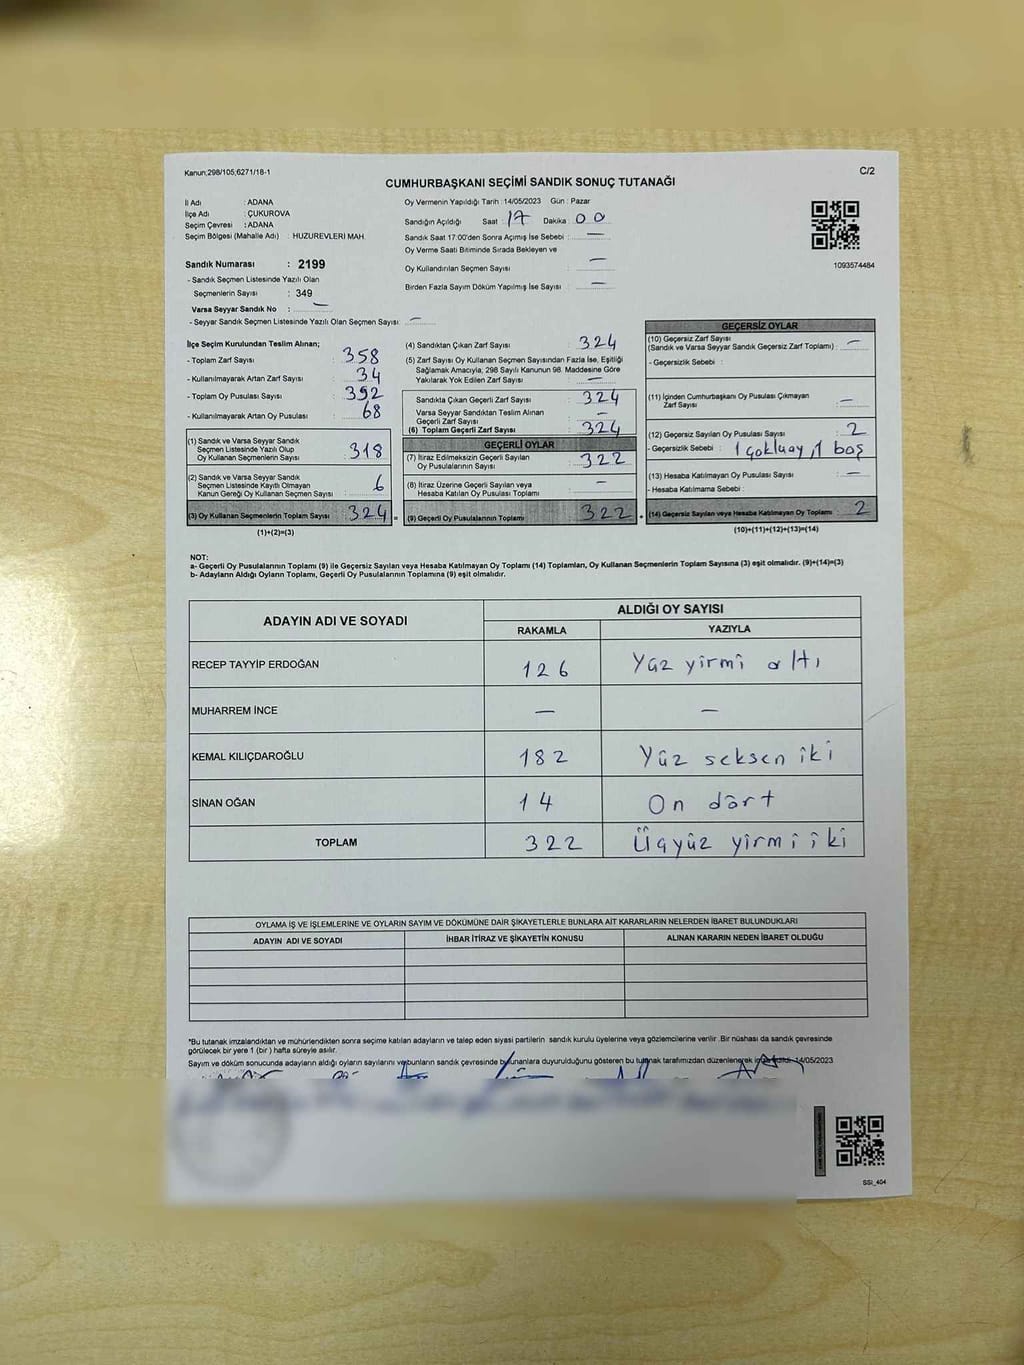 Kanun;298/105;6271/18-1
C/2
CUMHURBAŞKANI SEÇİMİ SANDIK SONUÇ TUTANAĞI
İl Adı : ADANA
İlçe Adı : ÇUKUROVA
Seçim Çevresi : ADANA
Seçim Bölgesi (Mahalle Adı) : HUZUREVLERİ MAH.
Sandık Numarası : 2199
- Sandık Seçmen Listesinde Yazılı Olan
Seçmenlerin Sayısı : 349
Varsa Seyyar Sandık No : —
- Seyyar Sandık Seçmen Listesinde Yazılı Olan Seçmen Sayısı: —
Oy Vermenin Yapıldığı Tarih : 14/05/2023 Gün : Pazar
Sandığın Açıldığı Saat : 17 Dakika : 00
Sandık Saat 17:00'den Sonra Açımış İse Sebebi : —
Oy Verme Saati Bitiminde Sırada Bekleyen ve
Oy Kullandırılan Seçmen Sayısı : —
Birden Fazla Sayım Döküm Yapılmış İse Sayısı : —
1093574484
İlçe Seçim Kurulundan Teslim Alınan;
- Toplam Zarf Sayısı : 358
- Kullanılmayarak Artan Zarf Sayısı : 34
- Toplam Oy Pusulası Sayısı : 392
- Kullanılmayarak Artan Oy Pusulası : 68
(1) Sandık ve Varsa Seyyar Sandık
Seçmen Listesinde Yazılı Olup
Oy Kullanan Seçmenlerin Sayısı : 318
(2) Sandık ve Varsa Seyyar Sandık
Seçmen Listesinde Kayıtlı Olmayan
Kanun Gereği Oy Kullanan Seçmen Sayısı : 6
(3) Oy Kullanan Seçmenlerin Toplam Sayısı : 324 =
(1)+(2)=(3)
(4) Sandıktan Çıkan Zarf Sayısı : 324
(5) Zarf Sayısı Oy Kullanan Seçmen Sayısından Fazla İse, Eşitliği
Sağlamak Amacıyla; 298 Sayılı Kanunun 98. Maddesine Göre
Yakılarak Yok Edilen Zarf Sayısı : —
Sandıkta Çıkan Geçerli Zarf Sayısı : 324
Varsa Seyyar Sandıktan Teslim Alınan
Geçerli Zarf Sayısı : —
(6) Toplam Geçerli Zarf Sayısı : 324
GEÇERLİ OYLAR
(7) İtiraz Edilmeksizin Geçerli Sayılan
Oy Pusulalarının Sayısı : 322
(8) İtiraz Üzerine Geçerli Sayılan veya
Hesaba Katılan Oy Pusulası Toplamı : —
(9) Geçerli Oy Pusulalarının Toplamı : 322 +
GEÇERSİZ OYLAR
(10) Geçersiz Zarf Sayısı
(Sandık ve Varsa Seyyar Sandık Geçersiz Zarf Toplamı) : —
- Geçersizlik Sebebi :
(11) İçinden Cumhurbaşkanı Oy Pusulası Çıkmayan
Zarf Sayısı : —
(12) Geçersiz Sayılan Oy Pusulası Sayısı : 2
- Geçersizlik Sebebi : 1 çokluoy, 1 boş
(13) Hesaba Katılmayan Oy Pusulası Sayısı : —
- Hesaba Katılmama Sebebi :
(14) Geçersiz Sayılan veya Hesaba Katılmayan Oy Toplamı : 2
(10)+(11)+(12)+(13)=(14)
NOT:
a- Geçerli Oy Pusulalarının Toplamı (9) ile Geçersiz Sayılan veya Hesaba Katılmayan Oy Toplamı (14) Toplamları, Oy Kullanan Seçmenlerin Toplam Sayısına (3) eşit olmalıdır. (9)+(14)=(3)
b- Adayların Aldığı Oyların Toplamı, Geçerli Oy Pusulalarının Toplamına (9) eşit olmalıdır.
ADAYIN ADI VE SOYADI ALDIĞI OY SAYISI
RAKAMLA YAZIYLA
RECEP TAYYİP ERDOĞAN 126 Yüz yirmi altı
MUHARREM İNCE — —
KEMAL KILIÇDAROĞLU 182 Yüz seksen iki
SİNAN OĞAN 14 On dört
TOPLAM 322 Üçyüz yirmi iki
OYLAMA İŞ VE İŞLEMLERİNE VE OYLARIN SAYIM VE DÖKÜMÜNE DAİR ŞİKAYETLERLE BUNLARA AİT KARARLARIN NELERDEN İBARET BULUNDUKLARI
ADAYIN ADI VE SOYADI İHBAR İTİRAZ VE ŞİKAYETİN KONUSU ALINAN KARARIN NEDEN İBARET OLDUĞU
*Bu tutanak imzalandıktan ve mühürlendikten sonra seçime katılan adayların ve talep eden siyasi partilerin sandık kurulu üyelerine veya gözlemcilerine verilir .Bir nüshası da sandık çevresinde
görülecek bir yere 1 (bir ) hafta süreyle asılır.
Sayım ve döküm sonucunda adayların aldığı oyların sayılarını ve bunların sandık çevresinde bulunanlara duyurulduğunu gösteren bu tutanak tarafımızdan düzenlenerek 14/05/2023
SSİ_404